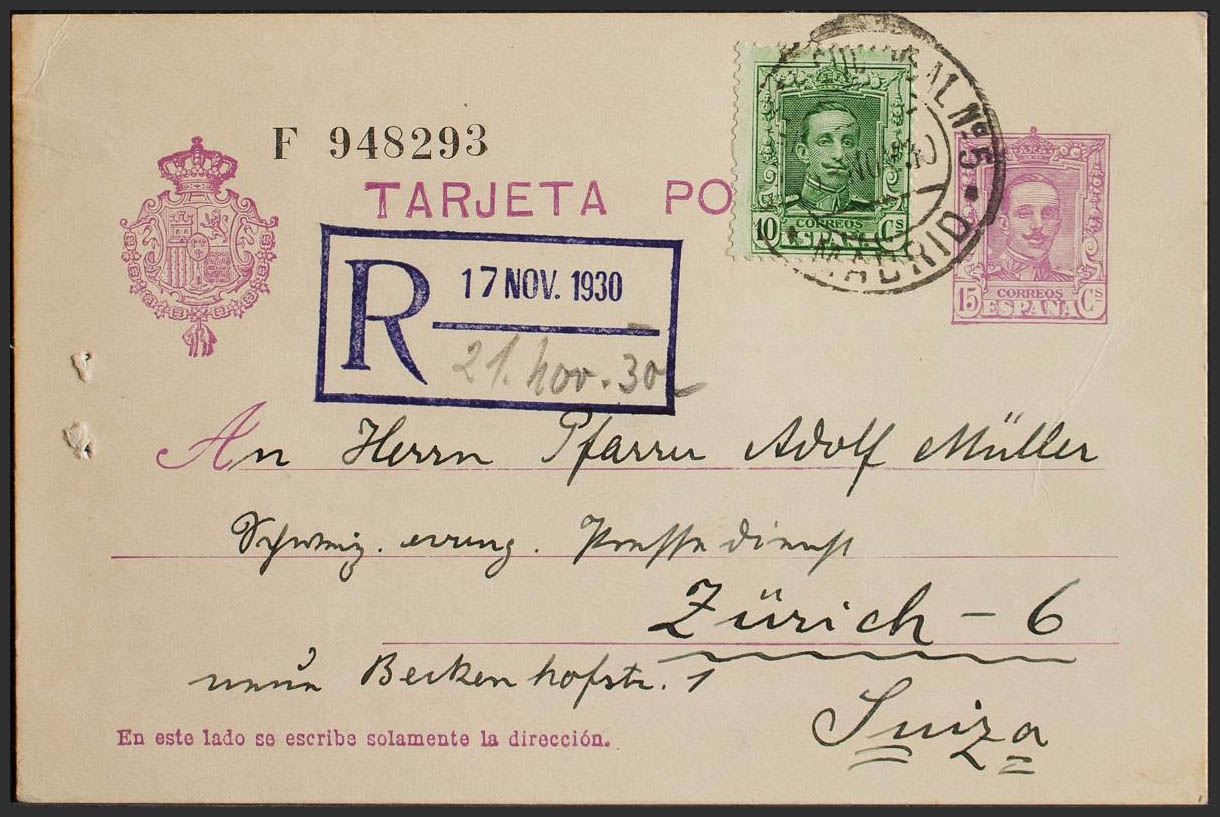 F 948293
TARJETA PO
SUCURSAL Nº 5
MADRID
10 CORREOS Cs
ESPAÑA
15 CORREOS Cs
ESPAÑA
R 17 NOV. 1930
21. Nov. 30
An Herrn Pfarrer Adolf Müller
Schweiz. evang. Pressedienst
Zürich - 6
neue Beckenhofstr. 1
Suiza
En este lado se escribe solamente la dirección.